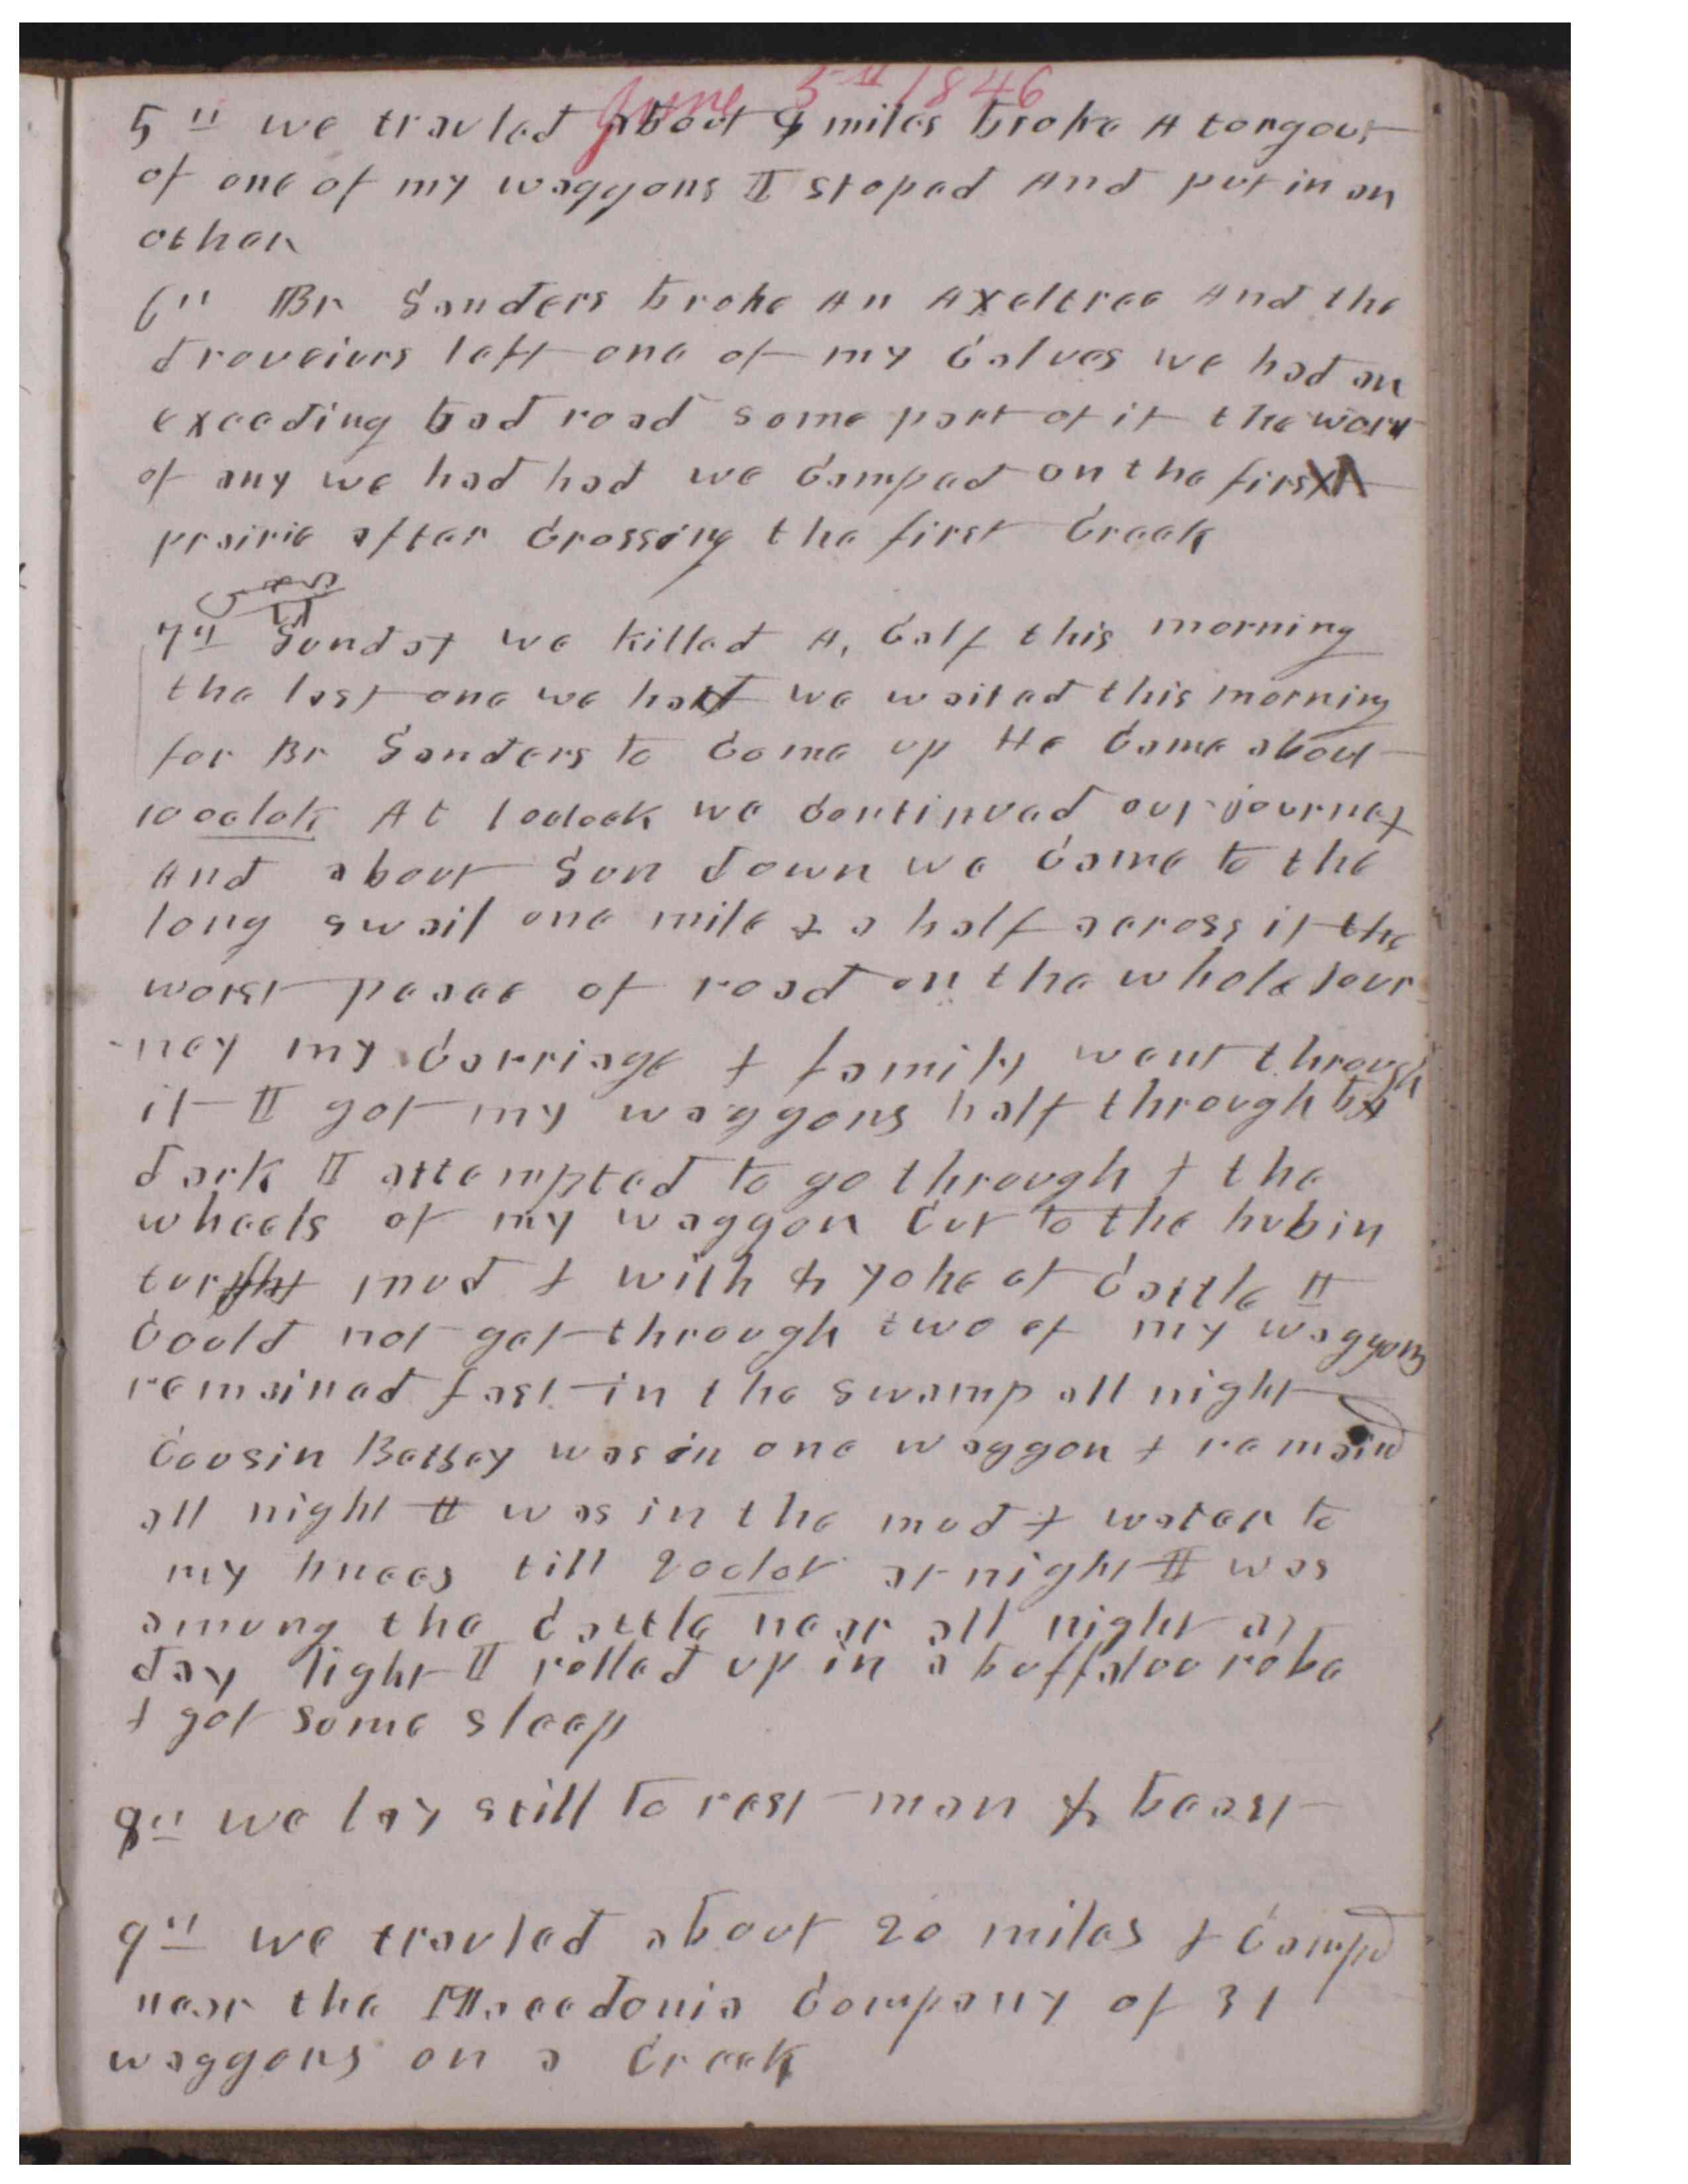 June 5th 1846
5th we travled about 4 miles broke A tongout
of one of my waggons I stoped And put in an
other
6th Br Sanders broke An Axeltree And the
droveiers left one of my Calves we had an
exceeding bad road some part of it the worst
of any we had had we Camped on the first
prairie after Crossing the first Creek
7th Sunday we killed A, Calf this morning
the last one we had we waited this morning
for Br Sanders to Come up He Came about
10 oclok At 1 oclock we Continued our journey
And about Sun down we Came to the
long swail one mile & a half across it the
worst peace of road on the whole jour
-ney my Carriage & family went through
it I got my waggons half through by
dark I attempted to go through & the
wheels of my waggon Cut to the hub in
turf mud & with 4 yoke of Cattle I
Could not get through two of my waggons
remained fast in the swamp all night
Cousin Betsey was in one waggon & remaind
all night I was in the mud & water to
my knees till 2 oclok at night I was
among the Cattle near all night at
day light I rolled up in a buffaloo robe
& got some sleep
8th we lay still to rest man & beast
9th we travled about 20 miles & Campd
near the Macedonia Company of 31
waggons on a Creek